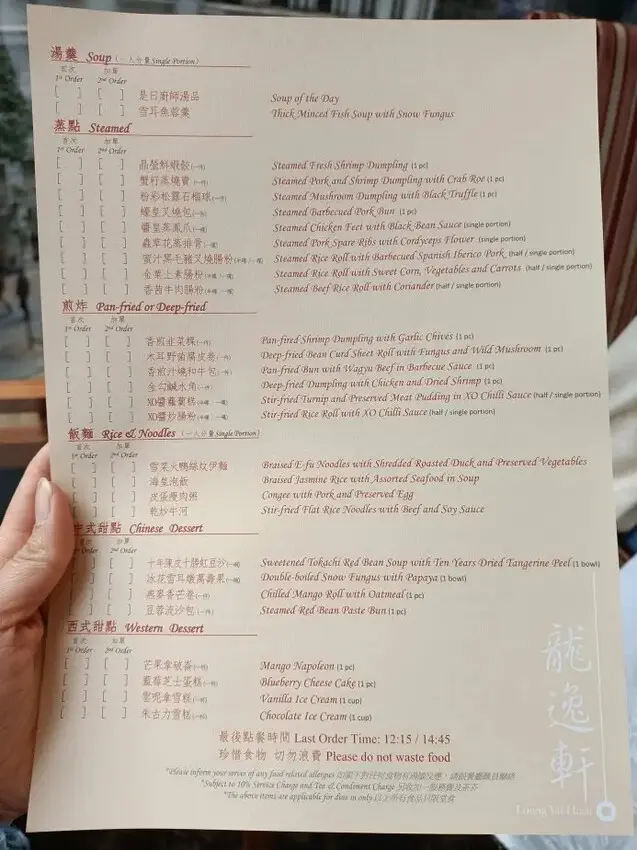 湯羹 Soup (一人分量 Single Portion)
首次 加單
1st Order 2nd Order
[ ] [ ] 是日廚師湯品 Soup of the Day
[ ] [ ] 雪耳魚蓉羹 Thick Minced Fish Soup with Snow Fungus
蒸點 Steamed
首次 加單
1st Order 2nd Order
[ ] [ ] 晶瑩鮮蝦餃(一件) Steamed Fresh Shrimp Dumpling (1 pc)
[ ] [ ] 蟹籽蒸燒賣(一件) Steamed Pork and Shrimp Dumpling with Crab Roe (1 pc)
[ ] [ ] 粉彩松露石榴球(一件) Steamed Mushroom Dumpling with Black Truffle (1 pc)
[ ] [ ] 蠔皇叉燒包(一件) Steamed Barbecued Pork Bun (1 pc)
[ ] [ ] 醬皇蒸鳳爪 Steamed Chicken Feet with Black Bean Sauce (single portion)
[ ] [ ] 蟲草花蒸排骨 Steamed Pork Spare Ribs with Cordyceps Flower (single portion)
[ ] [ ] 蜜汁黑毛豬叉燒腸粉 Steamed Rice Roll with Barbecued Spanish Iberico Pork (half / single portion)
[ ] [ ] 金粟上素腸粉 Steamed Rice Roll with Sweet Corn, Vegetables and Carrots (half / single portion)
[ ] [ ] 香茜牛肉腸粉 Steamed Beef Rice Roll with Coriander (half / single portion)
煎炸 Pan-fried or Deep-fried
首次 加單
1st Order 2nd Order
[ ] [ ] 香煎韭菜粿(一件) Pan-fired Shrimp Dumpling with Garlic Chives (1 pc)
[ ] [ ] 木耳野菌腐皮卷(一件) Deep-fried Bean Curd Sheet Roll with Fungus and Wild Mushroom (1 pc)
[ ] [ ] 香煎汁燒和牛包(一件) Pan-fried Bun with Wagyu Beef in Barbecue Sauce (1 pc)
[ ] [ ] 金勾鹹水角(一件) Deep-fried Dumpling with Chicken and Dried Shrimp (1 pc)
[ ] [ ] XO醬蘿蔔糕 Stir-fried Turnip and Preserved Meat Pudding in XO Chilli Sauce (half / single portion)
[ ] [ ] XO醬炒腸粉 Stir-fried Rice Roll with XO Chilli Sauce (half / single portion)
飯麵 Rice & Noodles (一人分量 Single Portion)
首次 加單
1st Order 2nd Order
[ ] [ ] 雪菜火鴨絲炆伊麵 Braised E-fu Noodles with Shredded Roasted Duck and Preserved Vegetables
[ ] [ ] 海皇泡飯 Braised Jasmine Rice with Assorted Seafood in Soup
[ ] [ ] 皮蛋瘦肉粥 Congee with Pork and Preserved Egg
[ ] [ ] 乾炒牛河 Stir-fried Flat Rice Noodles with Beef and Soy Sauce
中式甜點 Chinese Dessert
首次 加單
1st Order 2nd Order
[ ] [ ] 十年陳皮十勝紅豆沙(一碗) Sweetened Tokachi Red Bean Soup with Ten Years Dried Tangerine Peel (1 bowl)
[ ] [ ] 冰花雪耳燉萬壽果(一碗) Double-boiled Snow Fungus with Papaya (1 bowl)
[ ] [ ] 燕麥香芒卷(一件) Chilled Mango Roll with Oatmeal (1 pc)
[ ] [ ] 豆蓉流沙包(一件) Steamed Red Bean Paste Bun (1 pc)
西式甜點 Western Dessert
首次 加單
1st Order 2nd Order
[ ] [ ] 芒果拿破崙(一件) Mango Napoleon (1 pc)
[ ] [ ] 藍莓芝士蛋糕(一件) Blueberry Cheese Cake (1 pc)
[ ] [ ] 雲呢拿雪糕(一杯) Vanilla Ice Cream (1 cup)
[ ] [ ] 朱古力雪糕(一杯) Chocolate Ice Cream (1 cup)
最後點餐時間 Last Order Time: 12:15 / 14:45
珍惜食物 切勿浪費 Please do not waste food
*Please inform your server of any food related allergies 如閣下對任何食物有過敏反應，請跟餐廳職員聯絡
*Subject to 10% Service Charge and Tea & Condiment Charge 另收加一服務費及茶芥
*The above items are applicable for dine in only 以上所有食品只限堂食
龍逸軒
Loong Yat Heen